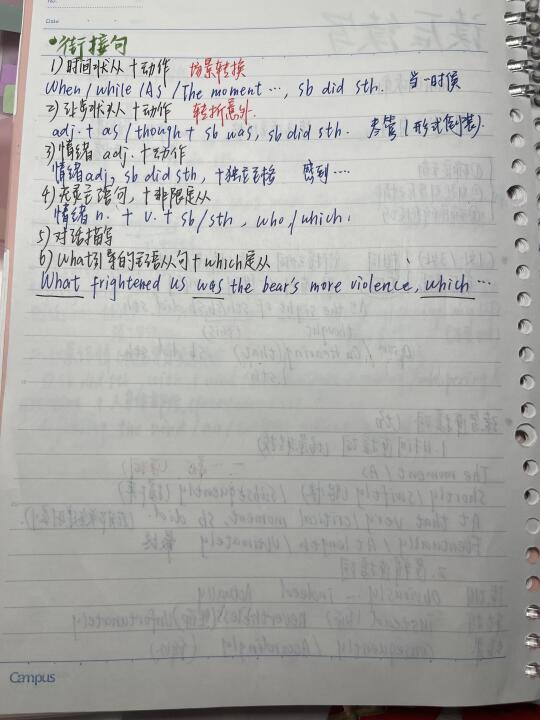 No.
Date
•衔接句
1) 时间状从 + 动作 场景转换
When / while / As / The moment …, sb did sth. 当…时候
2) 让步状从 + 动作 转折意外.
adj. + as / though + sb was, sb did sth. 尽管 (形式倒装).
3) 情绪 adj. + 动作
情绪 adj, sb did sth, + 独立主格 感到 ….
4) 无灵主语句, + 非限定从
情绪 n. + v. + sb / sth, who / which.
5) 对话描写
6) What引导的主语从句 + which定从
What frightened us was the bear's more violence, which …
Campus